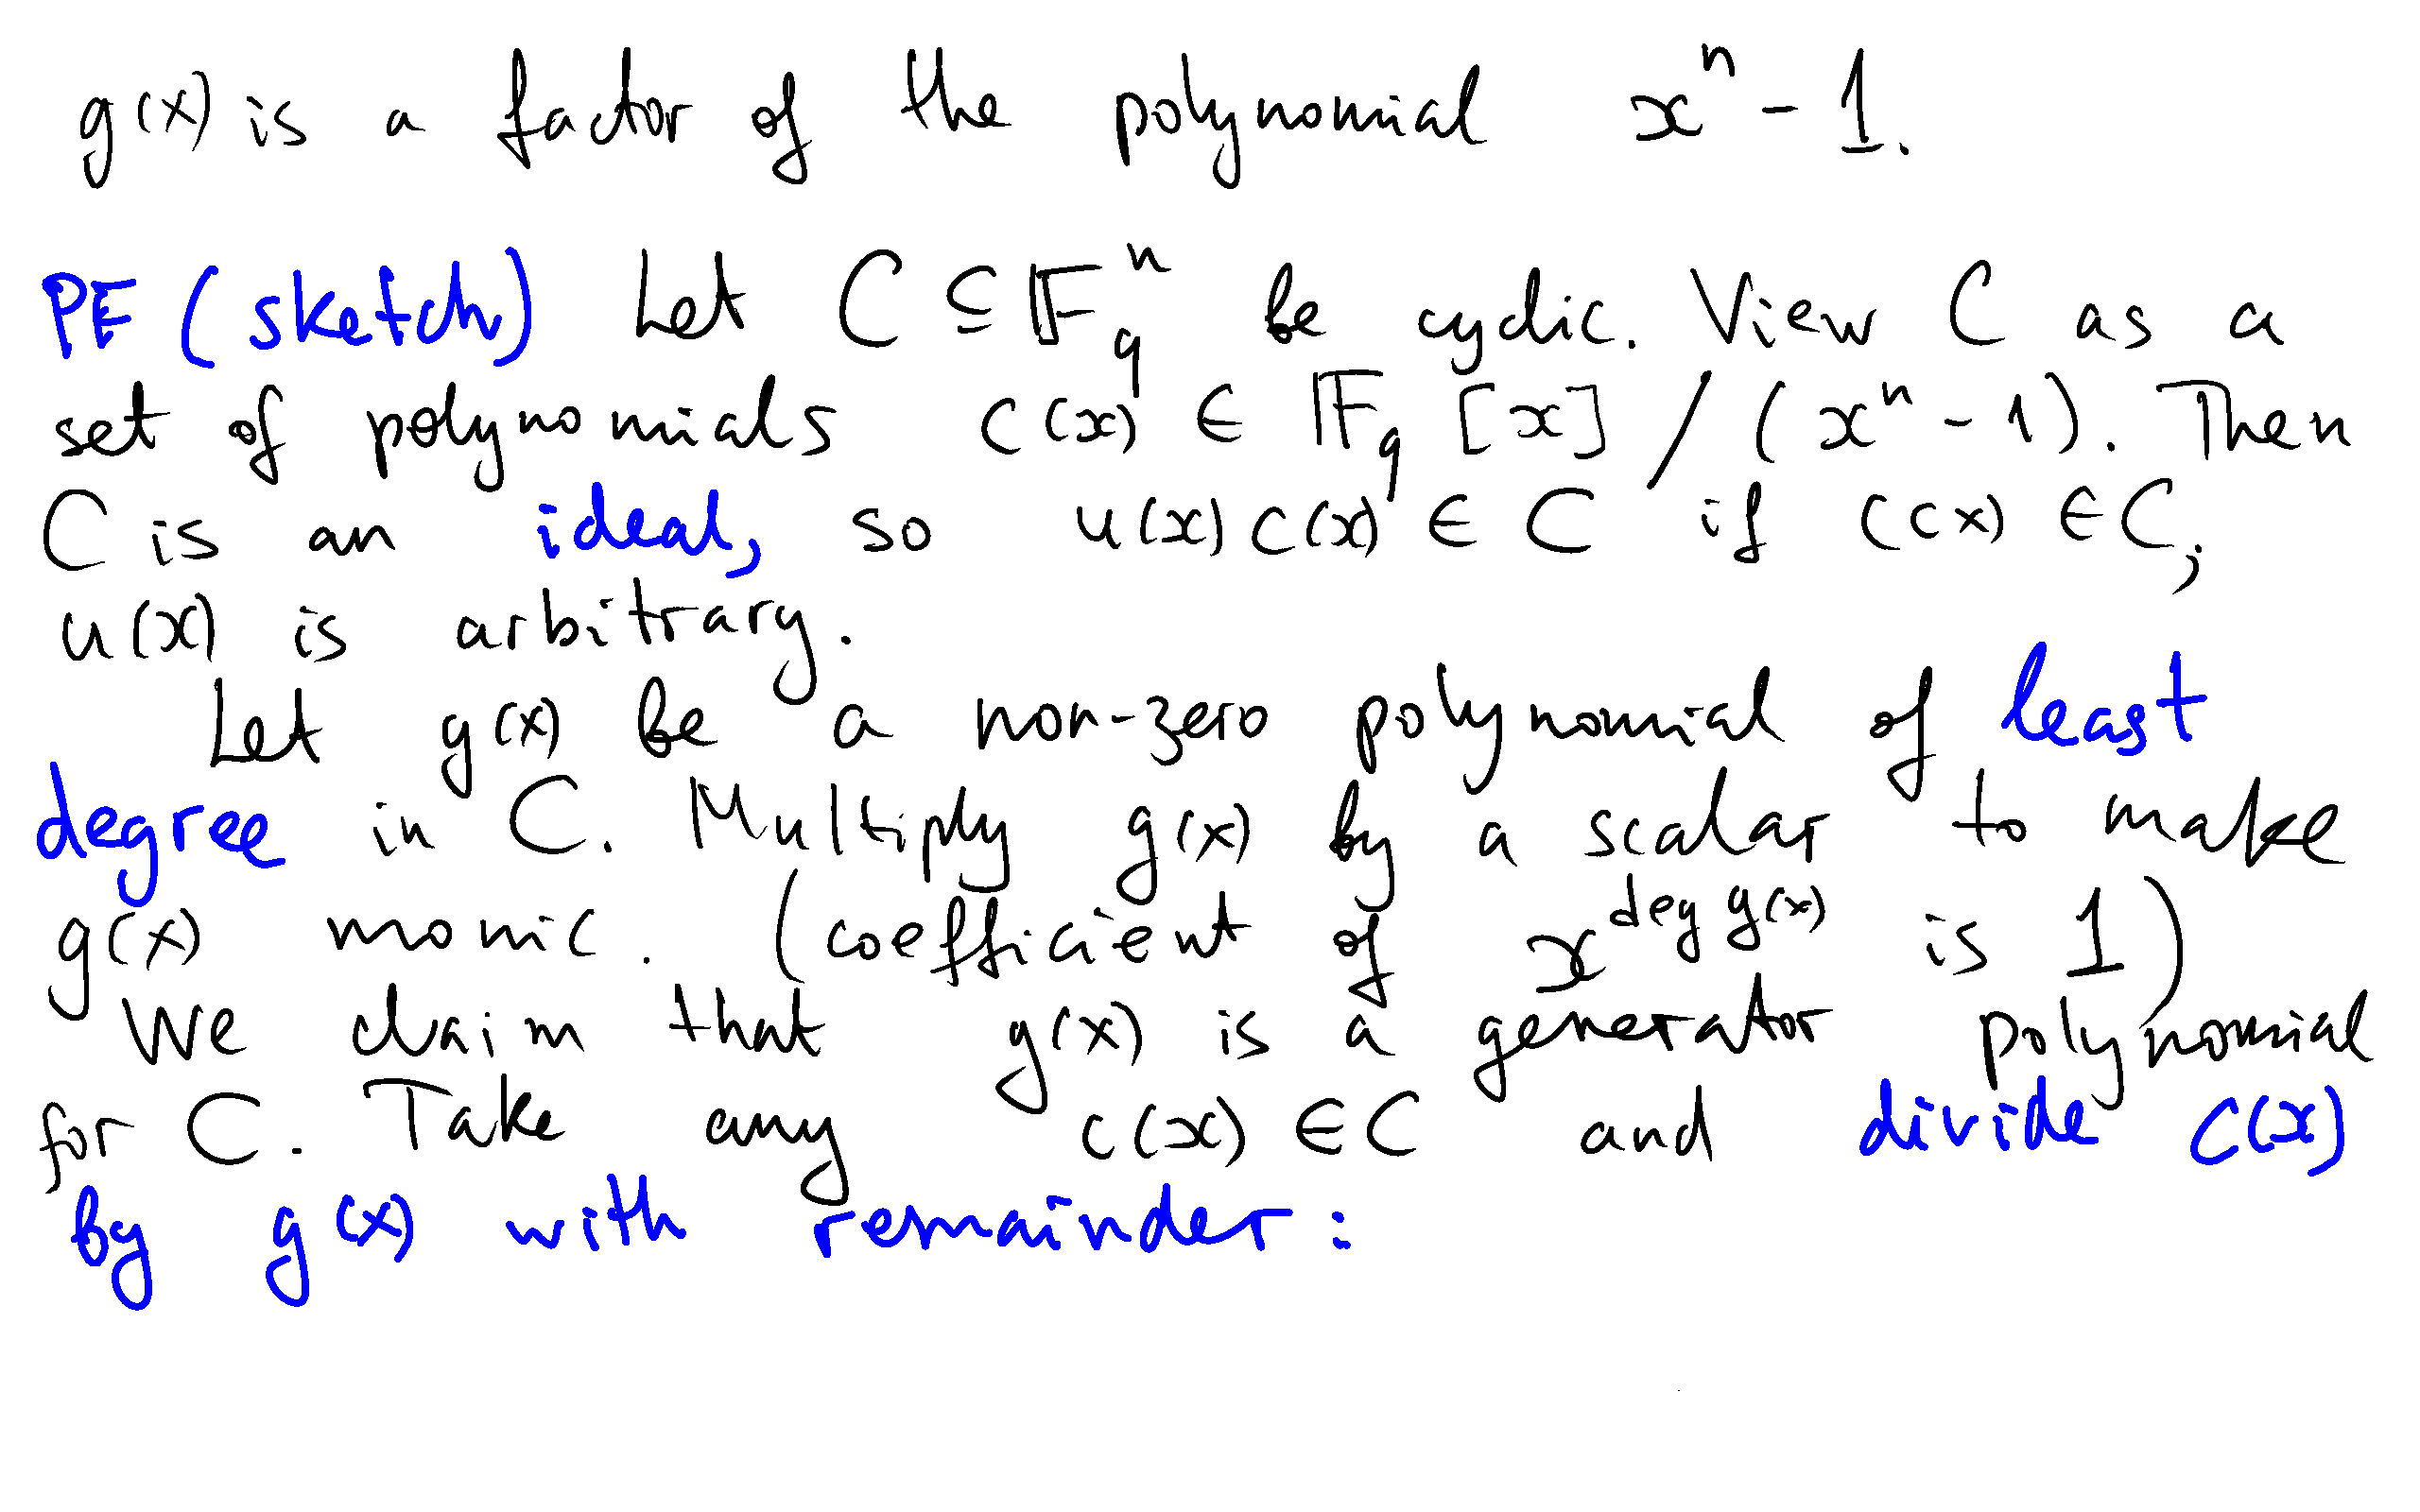 g(x) is a factor of the polynomial xⁿ - 1.
PF (sketch) Let C ⊆ 𝔽_qⁿ be cyclic. View C as a
set of polynomials c(x) ∈ 𝔽_q [x] / (xⁿ - 1). Then
C is an ideal, so u(x) c(x) ∈ C if c(x) ∈ C,
u(x) is arbitrary.
Let g(x) be a non-zero polynomial of least
degree in C. Multiply g(x) by a scalar to make
g(x) monic. (coefficient of x^{deg g(x)} is 1)
We claim that g(x) is a generator polynomial
for C. Take any c(x) ∈ C and divide c(x)
by g(x) with remainder: